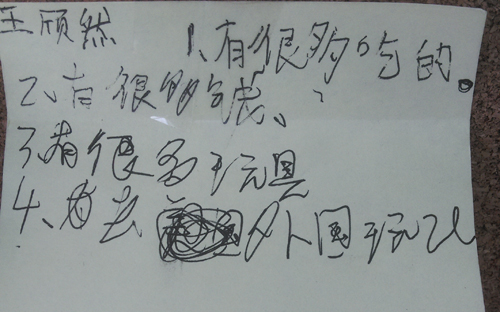 王颀然 1、有很多吃的。
2、有很多钱、
3、有很多玩具
4、有去外国玩